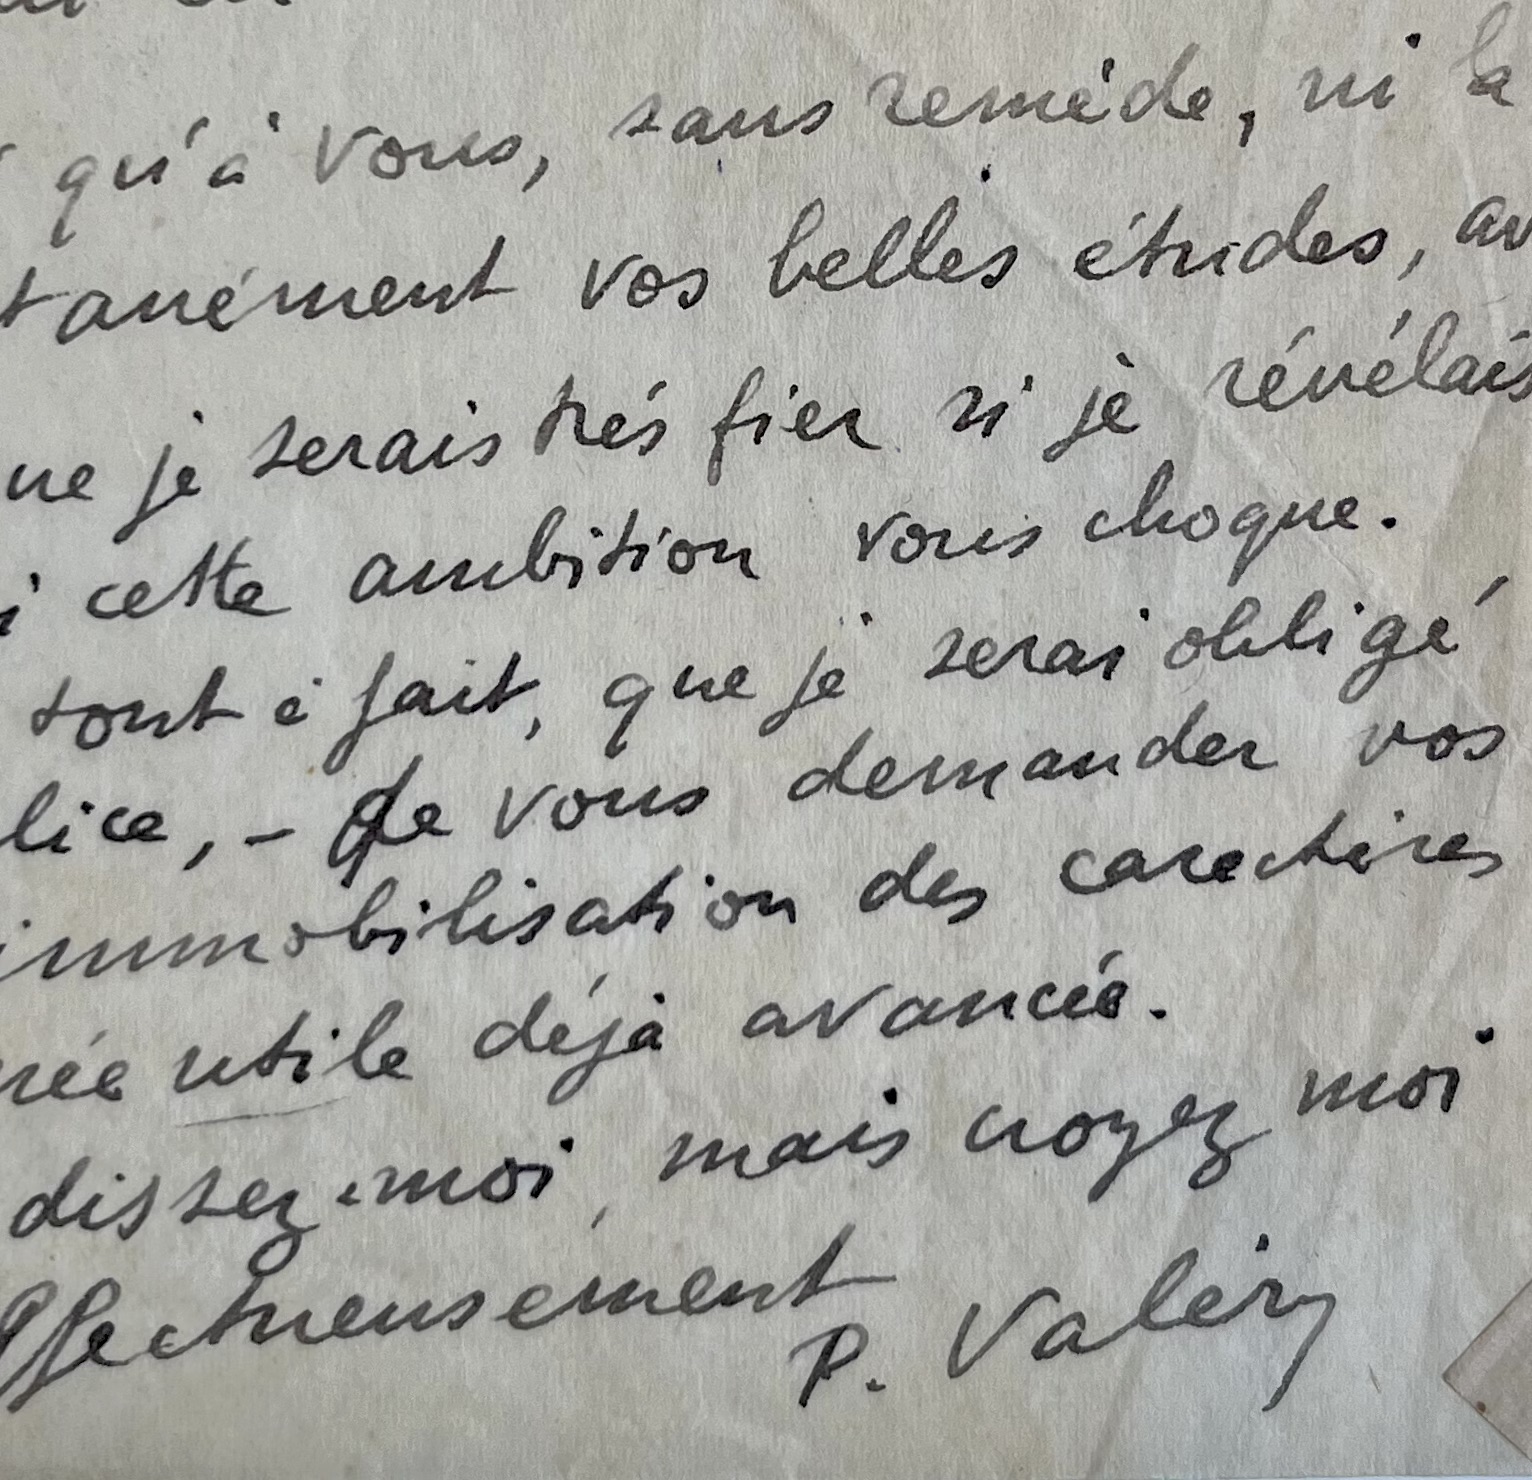 qu'à vous, sans remède, ni la
tanément vos belles études, av
ue je serais très fier si je révélais
i cette ambition vous choque.
tout à fait, que je serai obligé
lice, - de vous demander vos
immobilisation des caractères
rée utile déjà avancée.
dissez-moi, mais croyez moi
ffectueusement
P. Valéry